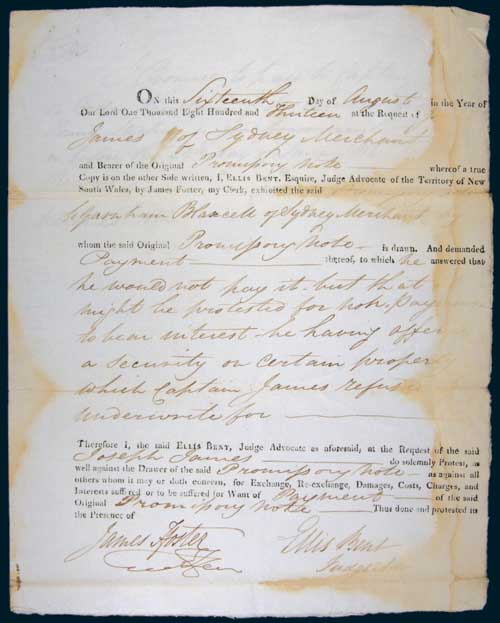 ON this Sixteenth Day of August in the Year of
Our Lord One Thousand Eight Hundred and Thirteen at the Request of
James of Sydney Merchant
and Bearer of the Original Promissory Note whereof a true
Copy is on the other Side written, I, ELLIS BENT, Esquire, Judge Advocate of the Territory of New
South Wales, by James Foster, my Clerk, exhibited the said
Blaxcell of Sydney Merchant
whom the said Original Promissory Note is drawn. And demanded
Payment thereof, to which he answered that
he would not pay it but that
might be protested for non
to bear interest he having
a security on certain
which Captain James
underwrite for
Therefore I, the said ELLIS BENT, Judge Advocate as aforesaid, at the Request of the said
Joseph James do solemnly Protest, as
well against the Drawer of the said Promissory Note as against all
others whom it may or doth concern, for Exchange, Re-exchange, Damages, Costs, Charges, and
Interests suffered or to be suffered for Want of Payment of the said
Original Promissory Note Thus done and protested in
the Presence of
James Foster
Ellis Bent